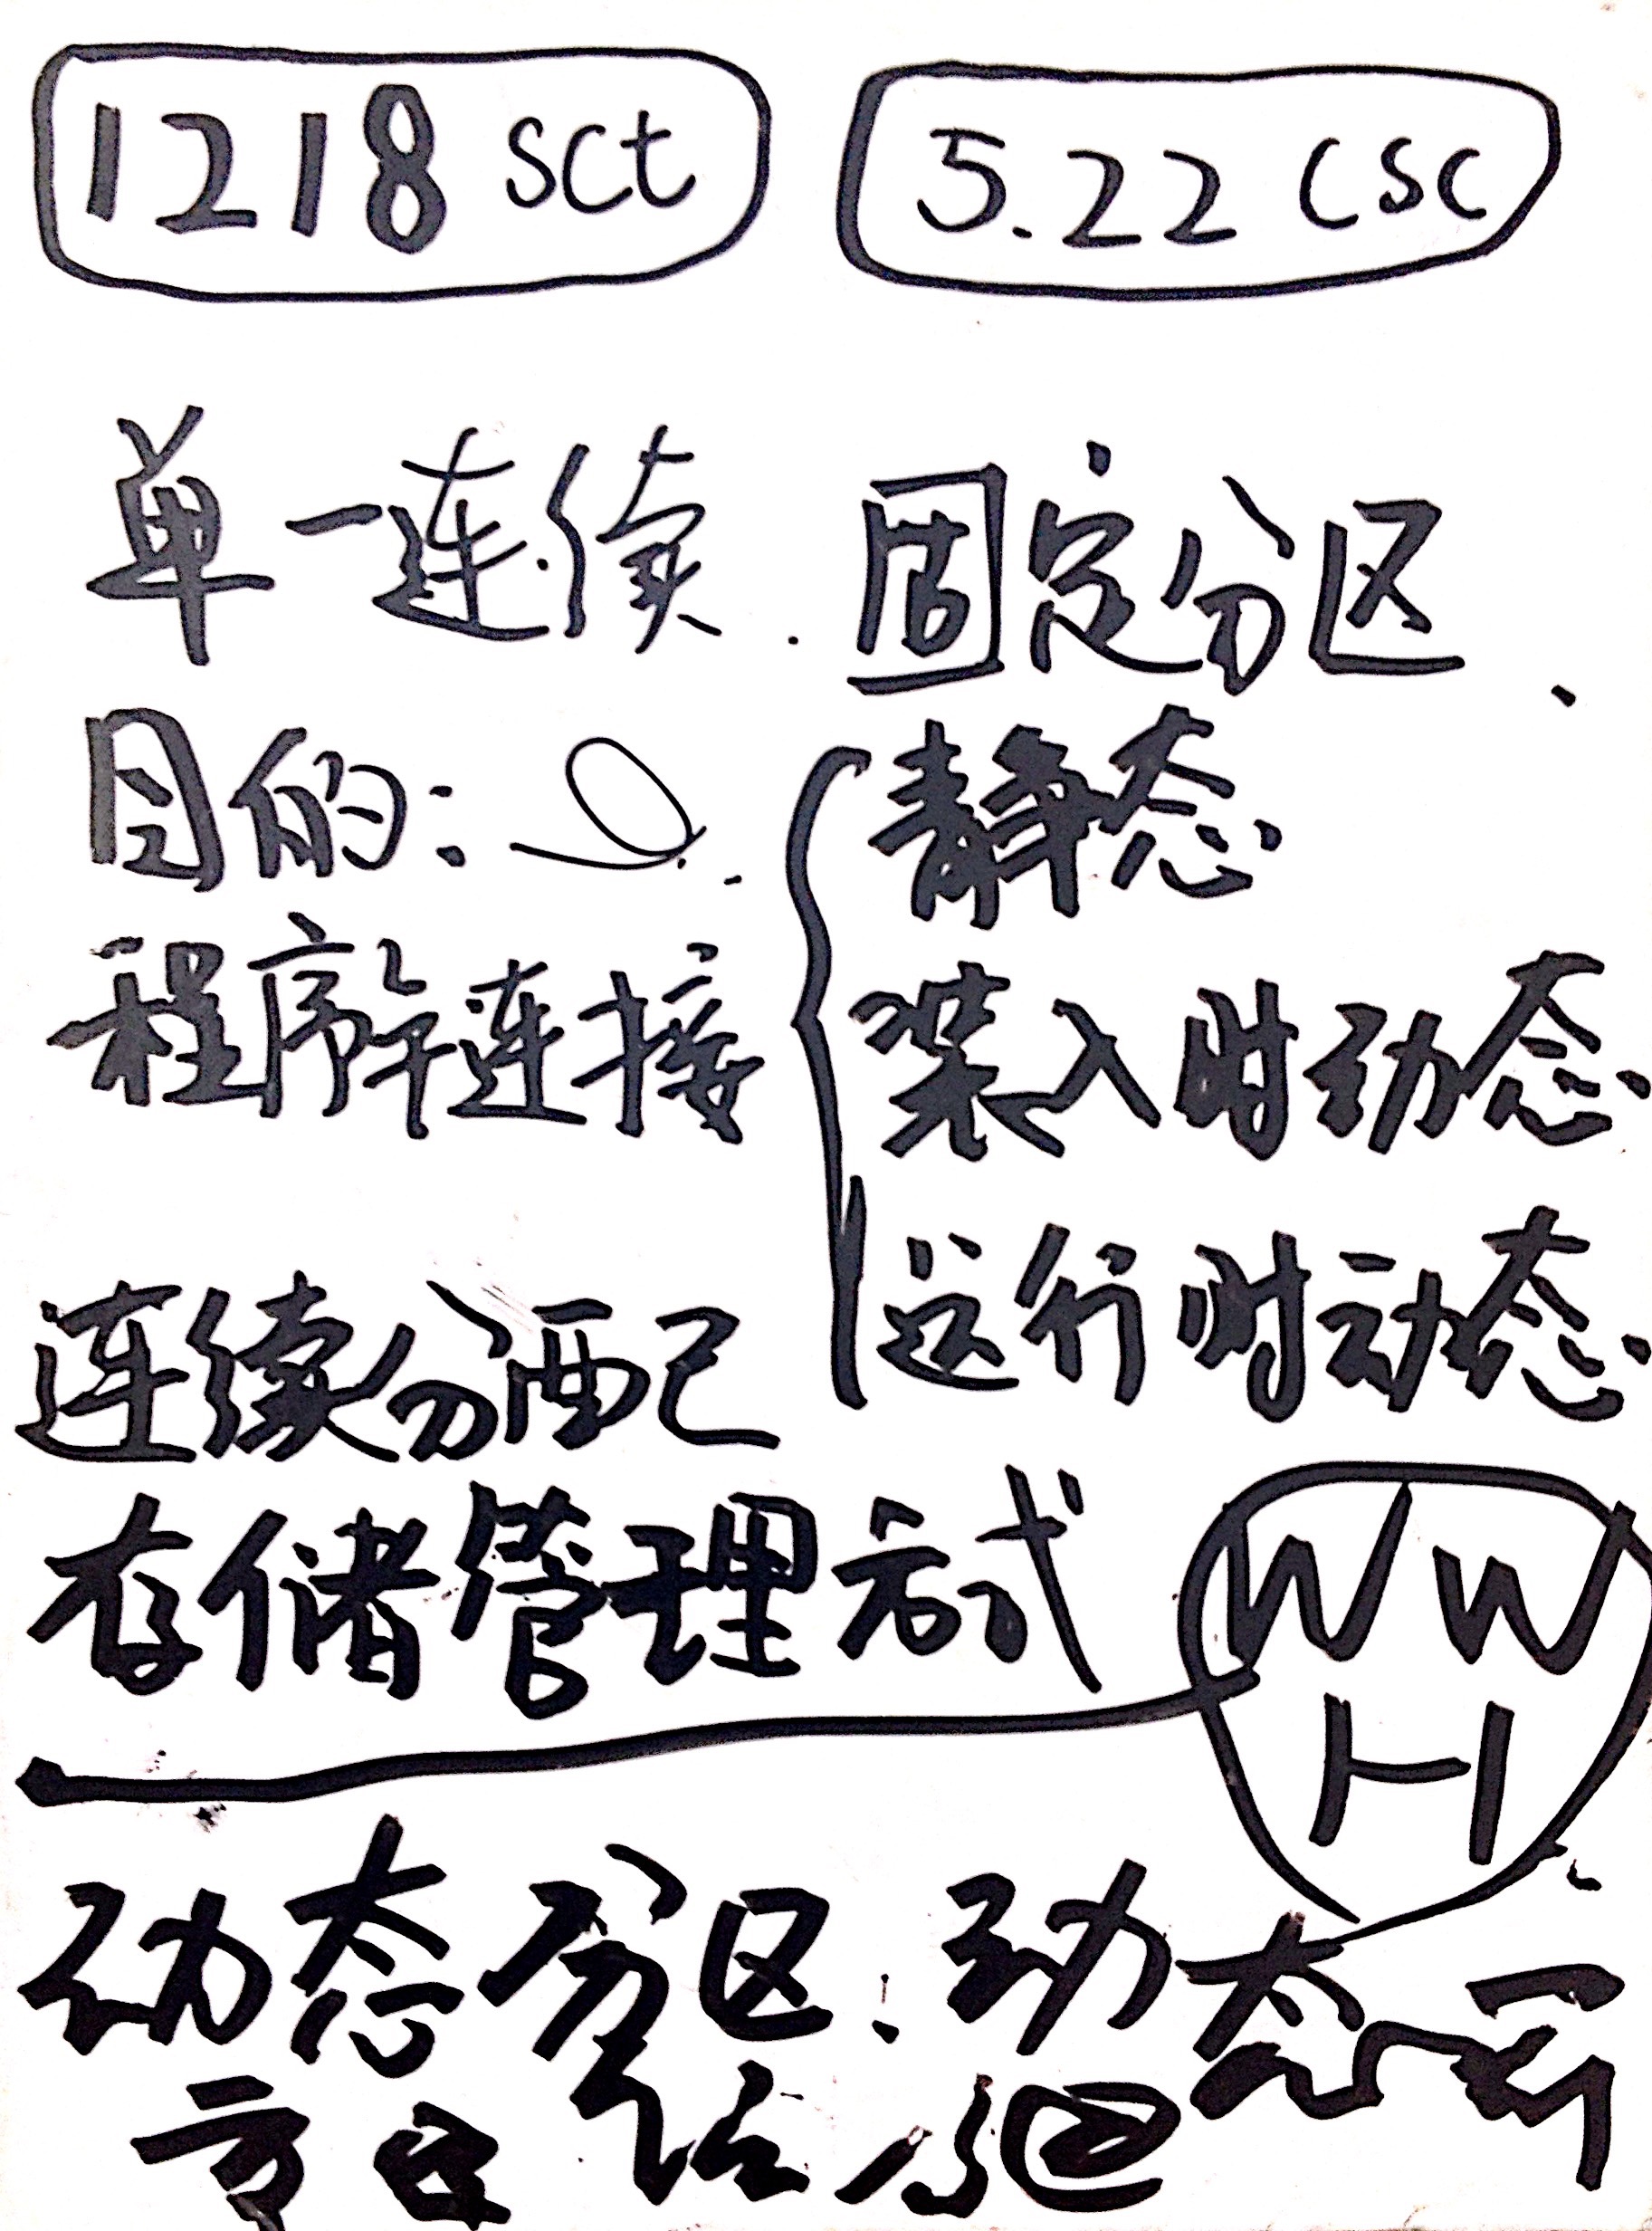 1218 sct
5.22 csc
单一连续. 固定分区、
目的:
程序连接
静态
装入时动态
运行时动态
连续分配
存储管理方式
WW
H
动态分区. 动态